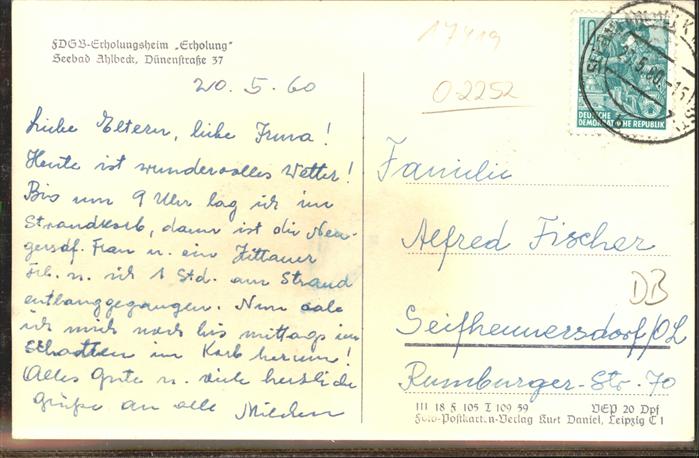 FDGB-Erholungsheim „Erholung"
Seebad Ahlbeck, Dünenstraße 37
20.5.60
Liebe Eltern, liebe Irma!
Heute ist wundervolles Wetter!
Bis um 9 Uhr lag ich im
Strandkorb, dann ist die Neu-
gersdf. Frau u. ein Zittauer
Frl. u. ich 1 Std. am Strand
entlanggegangen. Nun aale
ich mich noch bis mittags im
Schatten im Korb herum!
Alles Gute u. viele herzliche
Grüße an alle
17419
0-2252
10
DEUTSCHE
DEMOKRATISCHE REPUBLIK
Familie
Alfred Fischer
DB
Seifhennersdorf/OL
Rumburger-Str. 70
III 18 F 105 I 109 59 VEP 20 Dpf
Foto-Postkarten-Verlag Kurt Daniel, Leipzig C 1